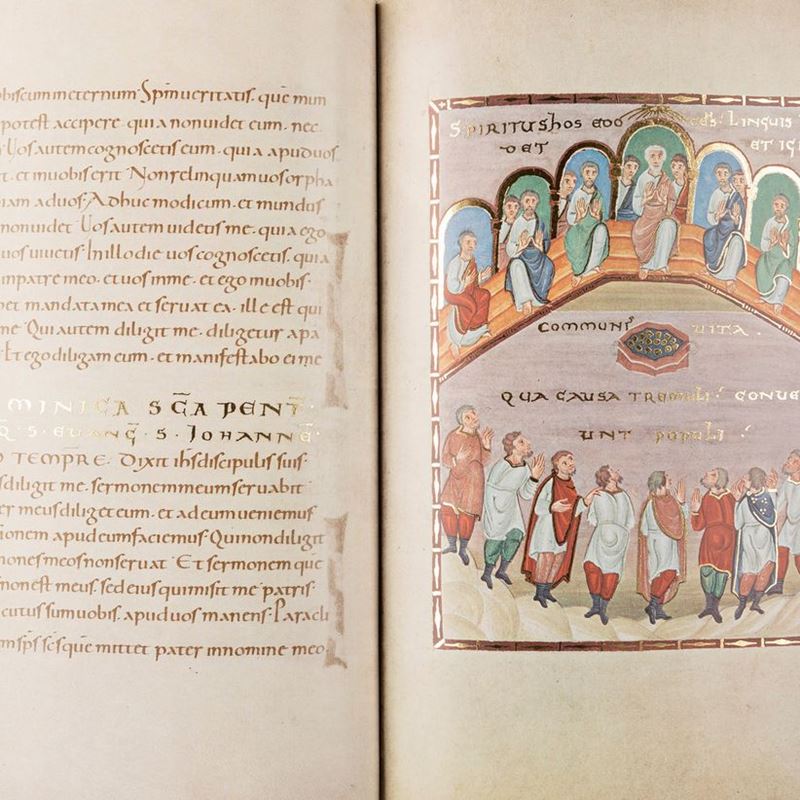 biscum ineternum· Sp̄m ueritatis· quē mun
potest accipere· quia nonuidet eum· nec
Uos autem cognoscetis eum· quia apud uos
et muobis erit Nonrelinquam uos orpha
iam aduos· Adhuc modicum· et mundus
nonuidet Uos autem uidetis me· quia ego
uos uiuetis· Inillodie uos cognoscetis· quia
inpatre meo· et uos inme· et ego muobis·
et mandata mea et seruat ea· ille est qui
me Qui autem diligit me· diligetur apa
Et ego diligam eum· et manifestabo ei me
MINICA SC̄A PENT̄·
R·S·EUANḠ·S·IOHANNĒ·
TEMPRE· Dixit ih̄s discipulis suis·
diligit me· sermonem meum seruabit
er meus diliget eum· et ad eum ueniemus
ionem apud eum faciemus· Quinondiligit
mones meos nonseruat Et sermonem quē
nonest meus· sed eius quimisit me patris·
cutus sum uobis· apud uos manens· Paracli
m sp̄s sc̄s quē mittet pater innomine meo·
SPIRITUS hos EDO LINGUIS
DET ET IGI
COMMUNIS UITA·
QUA CAUSA TREMULI CONUE
UNT POPULI